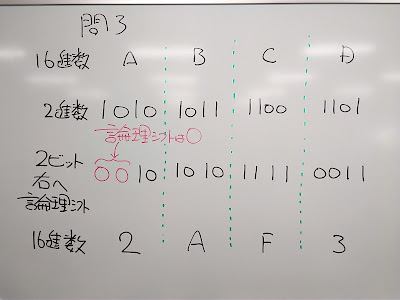 問3
16進数 A B C D
2進数 1010 1011 1100 1101
論理シフトは○
2ビット
右へ
論理シフト
0010 1010 1111 0011
16進数 2 A F 3